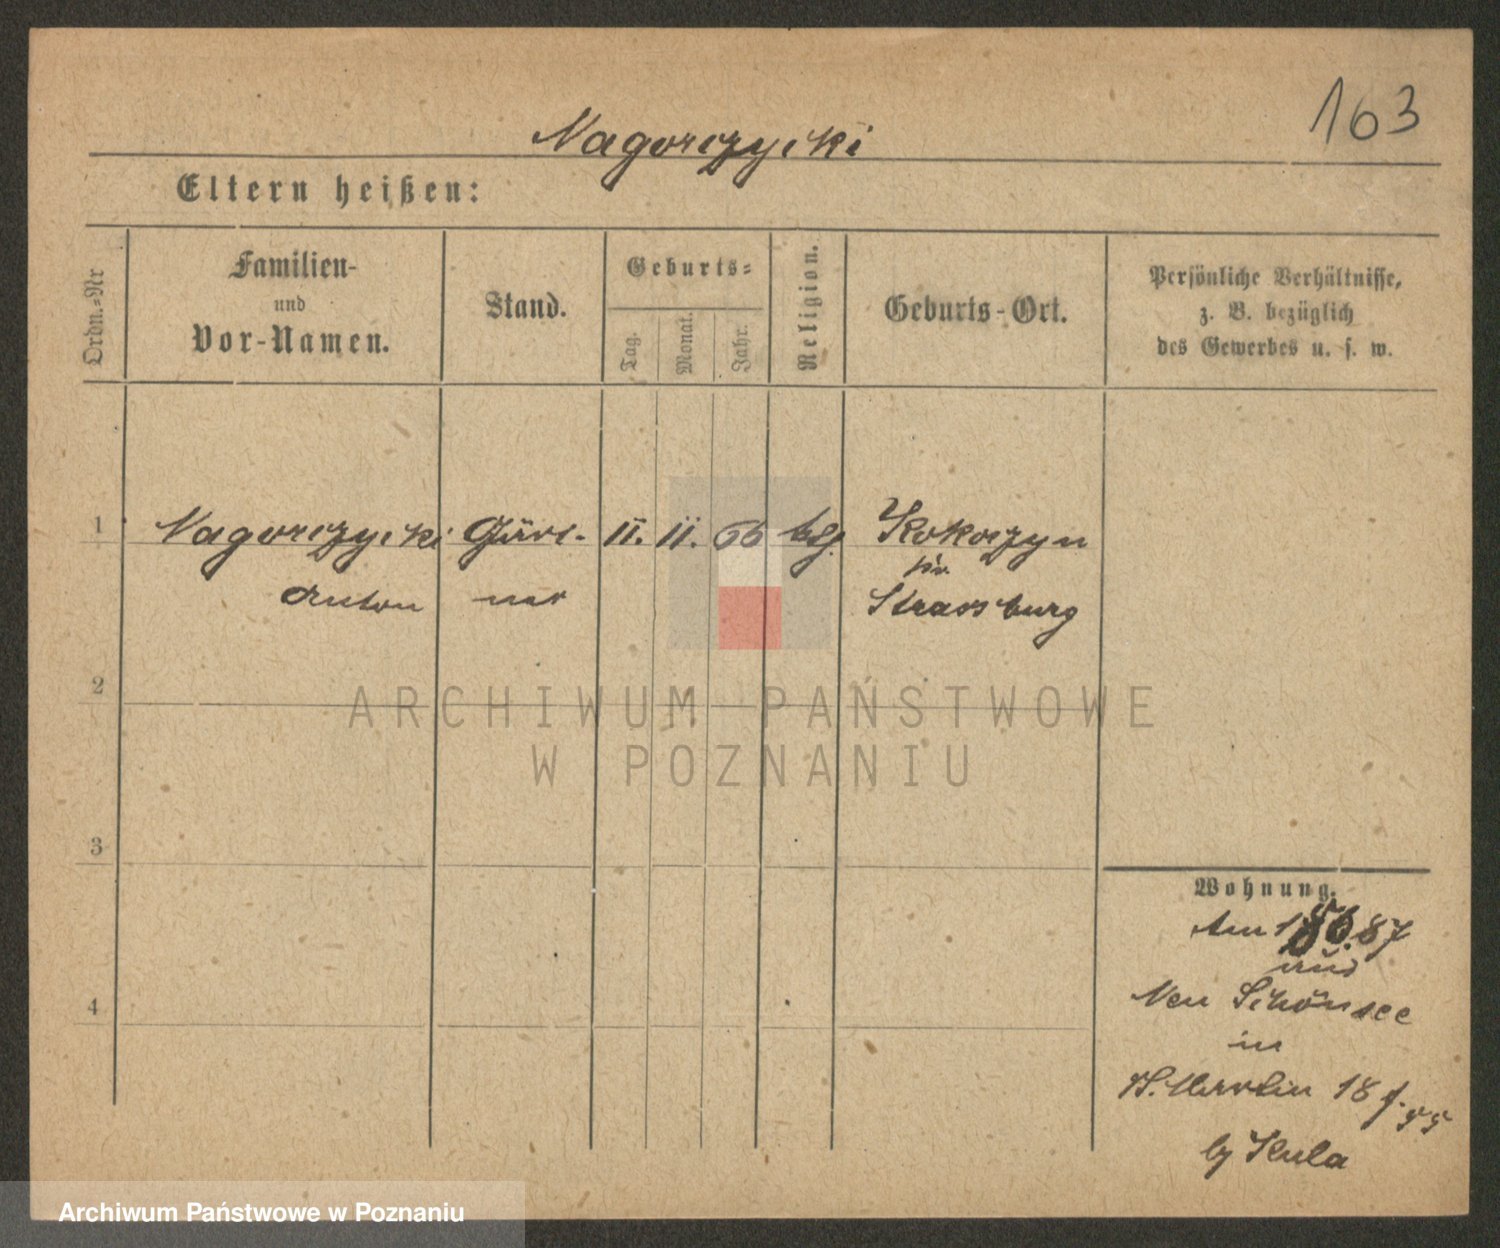 163
Nagorczycki
Eltern heißen:
Ordn.=Nr
Familien-
und
Vor-Namen.
Stand.
Geburts=
Tag.
Monat.
Jahr.
Religion.
Geburts-Ort.
Persönliche Verhältnisse,
z. B. bezüglich
des Gewerbes u. s. w.
1 Nagorczycki Gärt- 11. 11. 66 Kokoszyn
Anton ner Strassburg
2
3
4
Wohnung.
Am 87
aus
Neu Schönsee
in
St. Martin 18
by Kula
ARCHIWUM PAŃSTWOWE
W POZNANIU
Archiwum Państwowe w Poznaniu